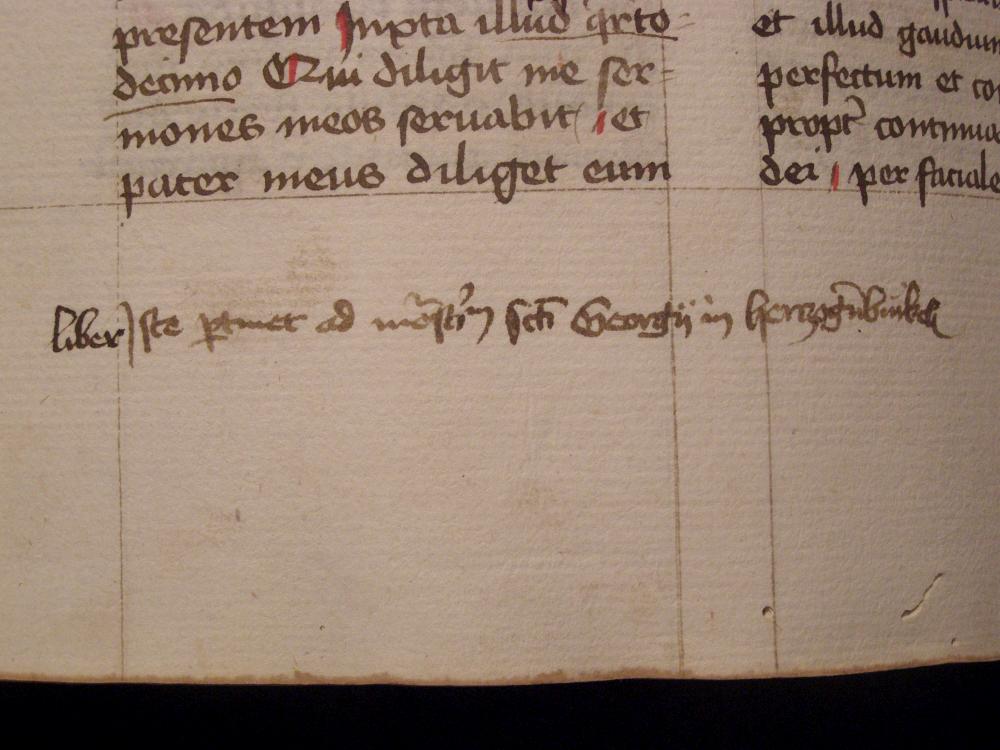 presentem Juxta illud qrto-
decimo Qui diligit me ser-
mones meos seruabit et
pater meus diliget eum
et illud gaudium
perfectum et co
propt̄ continua
dei per faciale
liber Iste ptinet ad mōstm̄ scti Georgij in hertzogn̄burkch